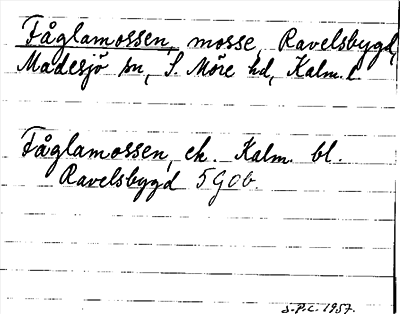 Fåglamossen, mosse, Ravelsbygd,
Madesjö sn, S. Möre hd, Kalm. l.
Fåglamossen, ek. Kalm. bl.
Ravelsbygd 5G0b.
S.P.C. 1957.